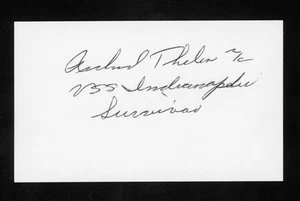 Richard Thelen 2/c
USS Indianapolis
Survivor